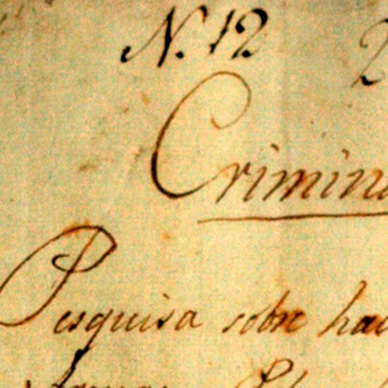 N. 12
Crimina
Pesquisa sobre hav